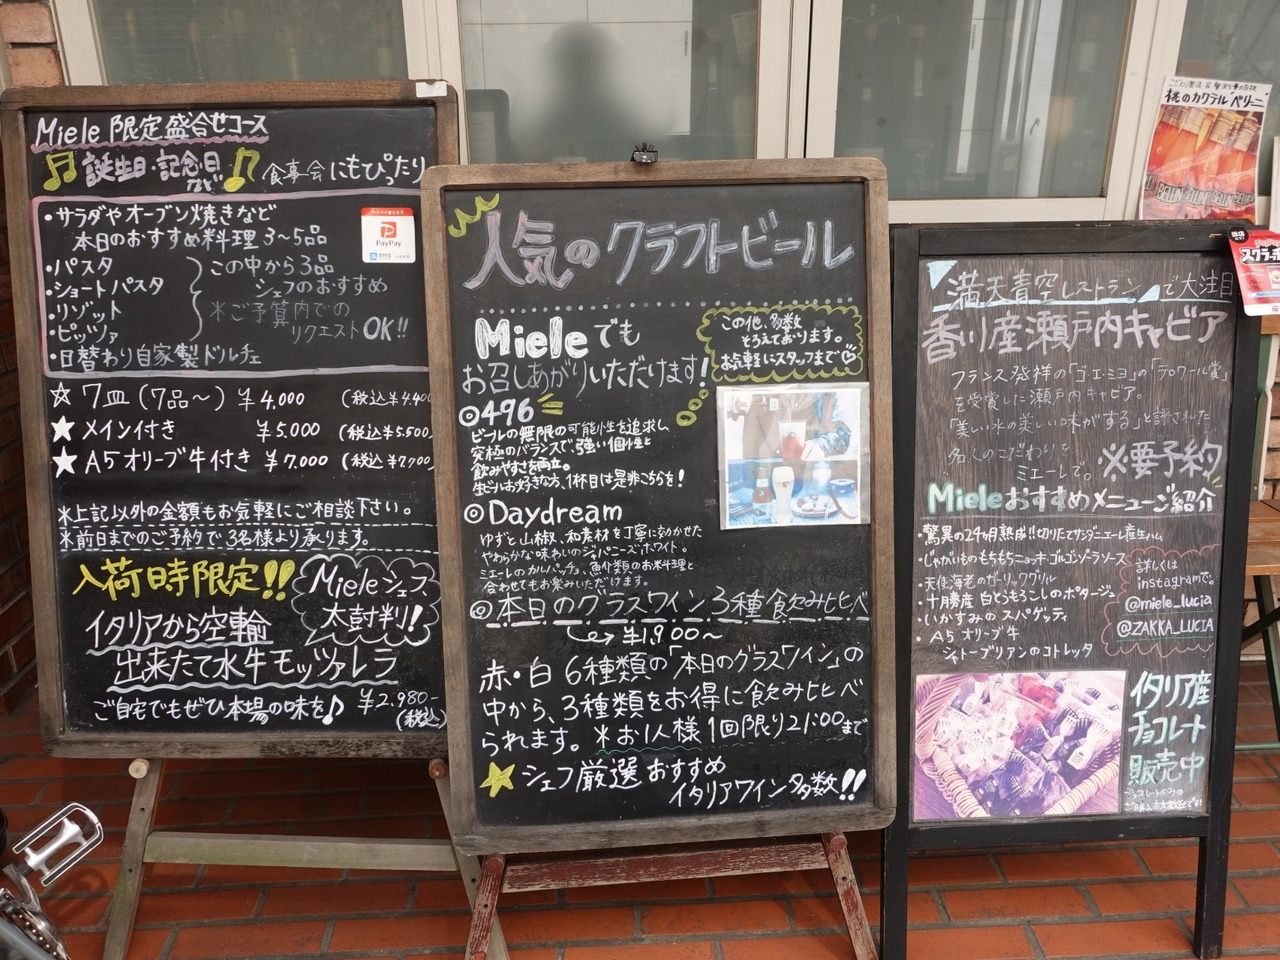 Miele 限定盛合せコース
誕生日・記念日など
食事会にもぴったり
・サラダやオーブン焼きなど
本日のおすすめ料理 3〜5品
・パスタ
・ショートパスタ
・リゾット
・ピッツァ
この中から3品
シェフのおすすめ
※ご予算内での
リクエストOK!!
・日替わり自家製ドルチェ
PayPay
☆ 7皿 (7品〜) ¥4,000 (税込¥4,400
★ メイン付き ¥5,000 (税込¥5,500
★ A5オリーブ牛付き ¥7,000 (税込¥7,700
※上記以外の金額もお気軽にご相談下さい。
※前日までのご予約で3名様より承ります。
入荷時限定!!
Mieleシェフ
太鼓判!
イタリアから空輸
出来たて水牛モッツァレラ
ご自宅でもぜひ本場の味を♪
¥2,980-
(税込)
人気のクラフトビール
Miele でも
お召しあがりいただけます!
この他、多数
そろえております。
お気軽にスタッフまで♡
◎496
ビールの無限の可能性を追求し、
究極のバランスで、強い個性と
飲みやすさを両立。
生ビールお好きな方、1杯目は是非こちらを!
◎Daydream
ゆずと山椒、和素材を丁寧に効かせた
やわらかな味わいのジャパニーズホワイト。
ミエーレのカルパッチョ、魚介類のお米料理と
合わせてもお楽しみいただけます。
◎本日のグラスワイン3種飲み比べ
¥1,900〜
赤・白 6種類の「本日のグラスワイン」の
中から、3種類をお得に飲み比べ
られます。 ※お1人様1回限り21:00まで
★シェフ厳選おすすめ
イタリアワイン多数!!
桃のカクテル"ベリーニ
BELLINI
満天青空レストランで大注目
香川産瀬戸内キャビア
フランス発祥の「ゴ・エ・ミヨ」の「テロワール賞」
を受賞した瀬戸内キャビア。
「美しい水の美しい味がする」と評された
名人のこだわりを
ミエーレで。
※要予約
Mieleおすすめメニューご紹介
・驚異の24ヶ月熟成!!切りたてサンダニエーレ産生ハム
・じゃがいものもちもちニョッキゴルゴンゾーラソース
・天使海老のガーリックグリル
・十勝産 白とうもろこしのポタージュ
・いかすみのスパゲッティ
・A5オリーブ牛
シャトーブリアンのコトレッタ
詳しくは
instagramで。
@miele_lucia
@ZAKKA_LUCIA
イタリア産
チョコレート
販売中